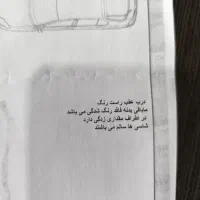 درب عقب راست رنگ
مابقی بدنه فاقد رنگ شدگی می باشد
در اطراف مقداری زدگی دارد
شاسی ها سالم می باشند